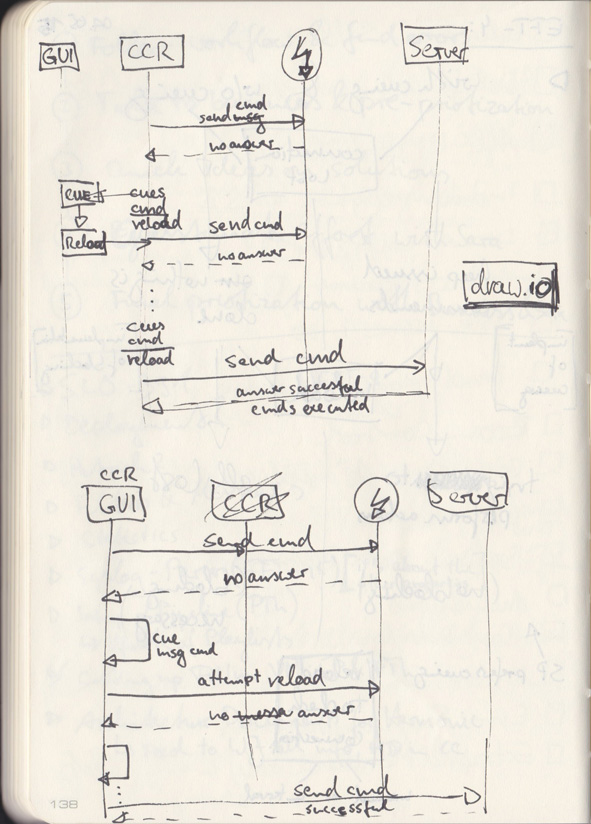 GUI
CCR
Server
cmd
send msg
no answer
CUE
cues
cmd
reload
Reload
send cmd
no answer
draw.io
cues
cmd
reload
send cmd
answer successful
cmds executed
CCR
GUI
CCR
Server
send cmd
no answer
cue
msg cmd
attempt reload
no answer
send cmd
successful
138